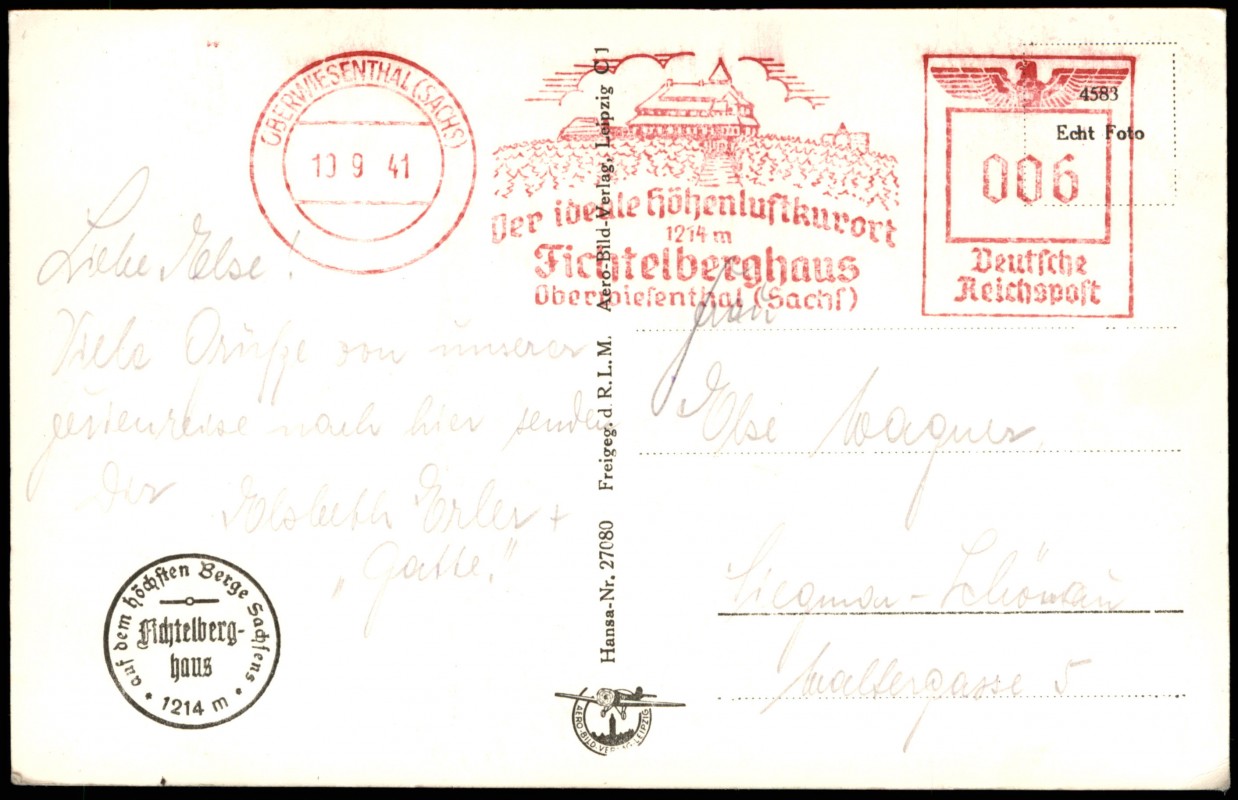 OBERWIESENTHAL (SACHS)
10 9 41
Der ideale Höhenluftkurort
1214 m
Fichtelberghaus
Oberwiesenthal (Sachs)
006
Deutsche
Reichspost
4583
Echt Foto
Liebe Else!
Viele Grüße von unserer
Ferienreise nach hier senden
Dir
Elsbeth Erler +
„Gatte."
auf dem höchsten Berge Sachsens
Fichtelberg-
haus
1214 m
Hansa-Nr. 27080 Freigeg. d. R.L.M. Aero-Bild-Verlag, Leipzig C 1
AERO-BILD VERLAG LEIPZIG
Frau
Else Wagner
Siegmar-Schönau
Waltergasse 5